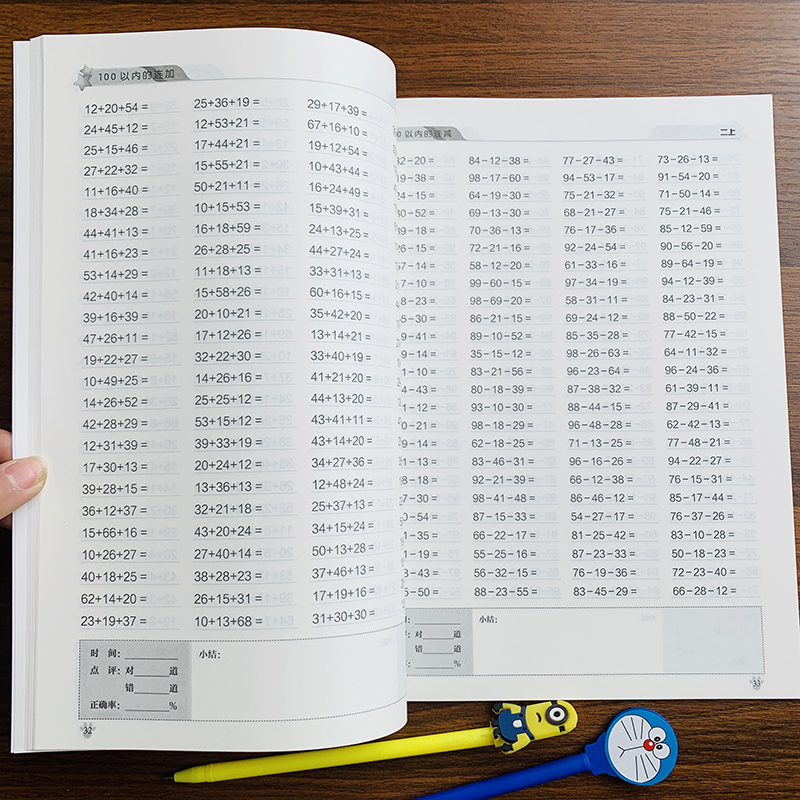 100 以内的连加
12+20+54 = 25+36+19 = 29+17+39 =
24+45+12 = 12+53+21 = 67+16+10 =
25+15+46 = 17+44+21 = 19+12+54 =
27+22+32 = 15+55+21 = 10+43+44 =
11+16+40 = 50+21+11 = 16+24+49 =
18+34+28 = 10+15+53 = 15+39+31 =
44+41+13 = 16+18+59 = 24+13+25 =
41+16+23 = 26+28+25 = 44+27+24 =
53+14+29 = 11+18+13 = 33+31+13 =
42+40+14 = 15+58+26 = 60+16+15 =
39+16+39 = 20+10+21 = 35+42+20 =
47+26+11 = 17+12+26 = 13+14+21 =
19+22+27 = 32+22+30 = 33+40+19 =
10+49+25 = 14+26+16 = 41+21+20 =
14+26+52 = 25+25+12 = 44+13+20 =
42+28+29 = 53+15+12 = 43+41+11 =
12+31+39 = 39+33+19 = 43+14+20 =
17+30+13 = 20+24+12 = 34+27+36 =
39+28+15 = 13+36+13 = 12+48+24 =
36+12+37 = 32+21+18 = 25+37+13 =
15+66+16 = 43+20+24 = 34+15+24 =
10+26+27 = 27+40+14 = 50+13+28 =
40+18+25 = 38+28+23 = 37+46+13 =
62+14+20 = 26+15+31 = 17+19+16 =
23+19+37 = 10+13+68 = 31+30+30 =
时 间：______ 小结：
点 评：对______道
错______道
正确率：______%
32
0 以内的连减 二上
32-20 = 84-12-38 = 77-27-43 = 73-26-13 =
19-38 = 98-17-60 = 94-53-17 = 91-54-20 =
24-15 = 64-19-30 = 75-21-32 = 71-50-14 =
30-52 = 69-13-30 = 68-21-27 = 75-21-46 =
39-18 = 70-36-13 = 76-17-36 = 85-12-59 =
26-15 = 72-21-16 = 92-24-54 = 90-56-20 =
57-14 = 58-12-20 = 61-33-16 = 89-64-19 =
7-10 = 99-60-15 = 97-34-19 = 94-12-39 =
8-23 = 98-69-20 = 58-31-11 = 84-23-31 =
5-30 = 86-21-15 = 69-24-12 = 88-50-22 =
9-41 = 89-10-52 = 85-35-28 = 77-42-15 =
9-14 = 35-15-12 = 98-26-63 = 64-11-32 =
1-10 = 83-21-56 = 96-23-64 = 96-24-36 =
4-43 = 80-18-39 = 87-38-32 = 61-39-11 =
1-12 = 93-10-30 = 88-44-15 = 87-29-41 =
0-10 = 98-18-29 = 96-48-28 = 62-42-13 =
9-14 = 62-18-25 = 71-13-25 = 77-48-21 =
1-13 = 83-46-31 = 96-16-26 = 94-22-27 =
8-18 = 92-21-39 = 66-12-38 = 76-15-31 =
7-30 = 98-41-48 = 86-46-12 = 85-17-44 =
0-54 = 87-15-33 = 54-27-17 = 76-37-26 =
1-35 = 66-22-17 = 81-25-42 = 83-10-28 =
1-19 = 55-25-16 = 87-23-33 = 50-18-23 =
3-43 = 56-32-15 = 76-19-36 = 72-23-40 =
5-50 = 88-23-55 = 83-45-29 = 66-28-12 =
：______ 小结：
对______道
错______道
______%
33